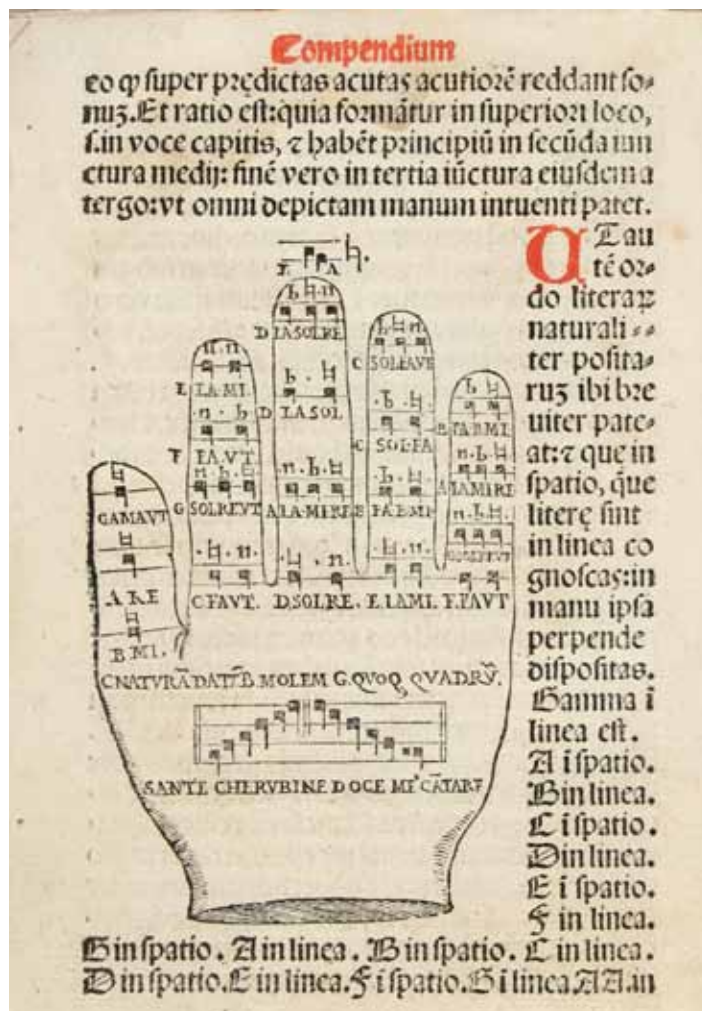 Compendium
eo ꝙ super prędictas acutas acutiorē reddant so⸗
nuꝫ. Et ratio est: quia formātur in superiori loco,
ſ. in voce capitis, ⁊ habēt principiū in secūda iun
ctura medij: finē vero in tertia iūctura eiusdem a
tergo: vt omni depictam manum intuenti patet.
UT au
tē or⸗
do literaꝝ
naturali⸗⸗
ter posita⸗
ruꝫ ibi bre
uiter pate⸗
at: ⁊ que in
spatio, q̄ue
literę sint
in linea co
gnoscas: in
manu ipsa
perpende
dispositas.
Gamma ī
linea est.
A ī spatio.
B in linea.
C ī spatio.
D in linea.
E ī spatio.
F in linea.
G in spatio. A in linea. B in spatio. C in linea.
D in spatio. E in linea. F ī spatio. G ī linea. AA in
E LA ♮.
b ♮ n
D LA SOL RE
n n
E LA. MI.
b . ♮
D LA SOL
b ♮ n
C SOL FA VT
b ♮
B FA B MI
n . b
F FA. VT.
C SOL. FA
♮
GAMA VT
n . b . ♮
G SOL RE VT
n . b . ♮
A LA. MI RE
b . ♮
B FA B MI
A LA MI RE
♮
A RE
♮ . n
C FA VT.
♮ . n
D. SOL RE.
♮ . n
E LA MI.
F. FA VT
♮
B MI.
C NATVRĀ DAT F B MOLEM G. QVOQ QVADRV̄.
SANTE CHERVBINE DOCE ME CĀTARE